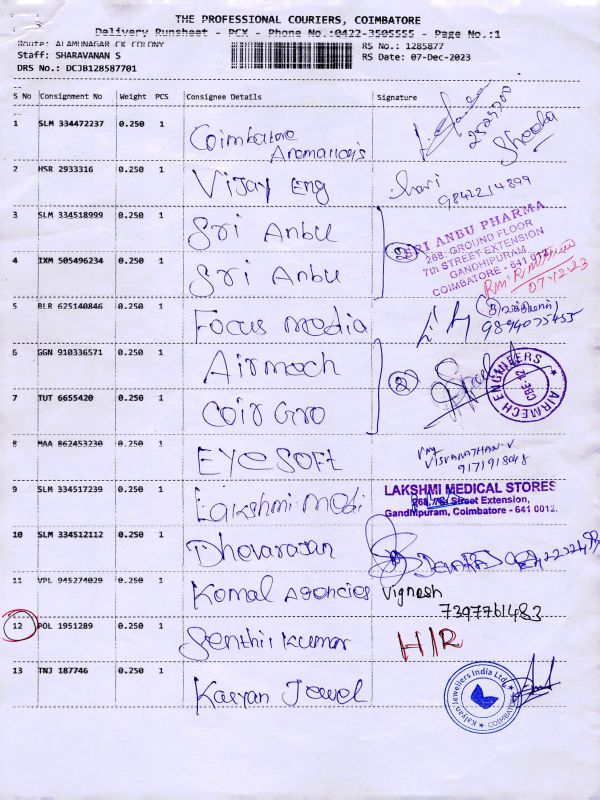 THE PROFESSIONAL COURIERS, COIMBATORE
Delivery Runsheet - PCX - Phone No.:0422-3505555 - Page No.:1
Route: ALAMUNAGAR CK COLONY
RS No.: 1285877
Staff: SHARAVANAN S
RS Date: 07-Dec-2023
DRS No.: DCJB128587701
S No Consignment No Weight PCS Consignee Details Signature
1 SLM 334472237 0.250 1 Coimbatore
Aromatics
Sheela
2 HSR 2933316 0.250 1 Vijay Eng
hari
9842214899
3 SLM 334518999 0.250 1 Sri Anbu
2
SRI ANBU PHARMA
268, GROUND FLOOR
7th STREET EXTENSION
GANDHIPURAM
COIMBATORE - 641 012
07-12-23
4 IXM 505496234 0.250 1 Sri Anbu
5 BLR 625140846 0.250 1 Focus media
9894075455
6 GGN 910336571 0.250 1 Airmech
2
AIRMECH ENGINEERS
CBE-12
7 TUT 6655420 0.250 1 Coir Gro
8 MAA 862453230 0.250 1 EYE SOFT
VISVANATHAN.V
9 SLM 334517239 0.250 1 Lakshmi Medi
LAKSHMI MEDICAL STORES
268, 7th Street Extension,
Gandhipuram, Coimbatore - 641 012.
10 SLM 334512112 0.250 1 Dhevarajan
11 VPL 945274029 0.250 1 Komal Agencies
Vignesh
7397761483
12 POL 1951289 0.250 1 Senthil Kumar
H/R
13 TNJ 187746 0.250 1 Kalyan Jewel
Kalyan Jewellers India Ltd.
COIMBATORE